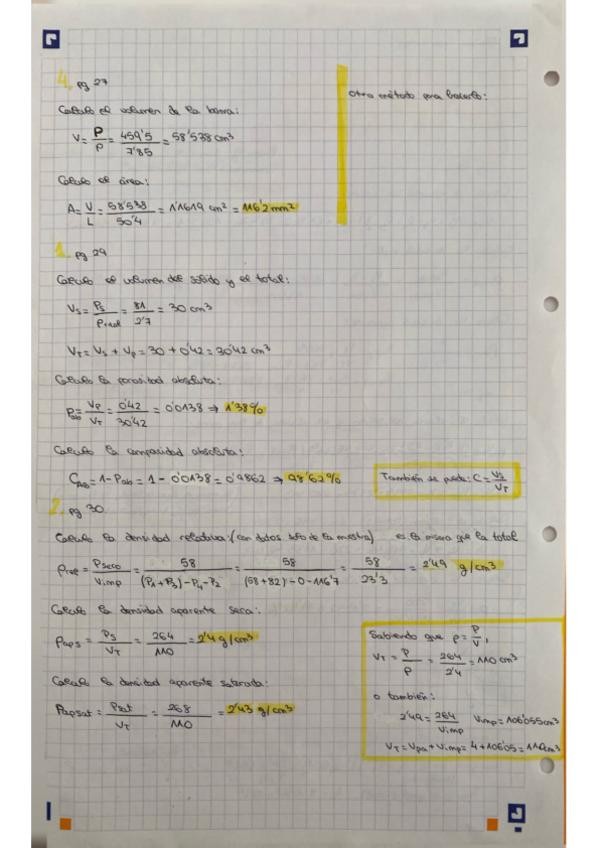 4. pg 27
Otro método para hacerlo:
Calculo el volumen de la barra:
V = P/ρ = 459'5/7'85 = 58'538 cm³
Calculo el área:
A = V/L = 58'538/50'4 = 1'1619 cm² = 116'2 mm²
1. pg 29
Calculo el volumen del sólido y el total:
Vs = Ps/ρreal = 81/2'7 = 30 cm³
VT = Vs + Vp = 30 + 0'42 = 30'42 cm³
Calculo la porosidad absoluta:
Pab = Vp/VT = 0'42/30'42 = 0'0138 ⇒ 1'38%
Calculo la compacidad absoluta:
CAB = 1 - Pab = 1 - 0'0138 = 0'9862 ⇒ 98'62%
También se puede: C = Vs/VT
2. pg 30
Calculo la densidad relativa: (con datos solo de la muestra) es la misma que la total
ρrel = Pseco/Vimp = 58/((P1 + P3) - P4 - P2) = 58/((58 + 82) - 0 - 116'7) = 58/23'3 = 2'49 g/cm³
Calculo la densidad aparente seca:
ρaps = Ps/VT = 264/110 = 2'4 g/cm³
Calculo la densidad aparente saturada:
ρapsat = Psat/VT = 268/110 = 2'43 g/cm³
Sabiendo que ρ = P/V,
VT = P/ρ = 264/2'4 = 110 cm³
o también:
2'49 = 264/Vimp Vimp = 106'055 cm³
VT = Vpa + Vimp = 4 + 106'05 = 110 cm³